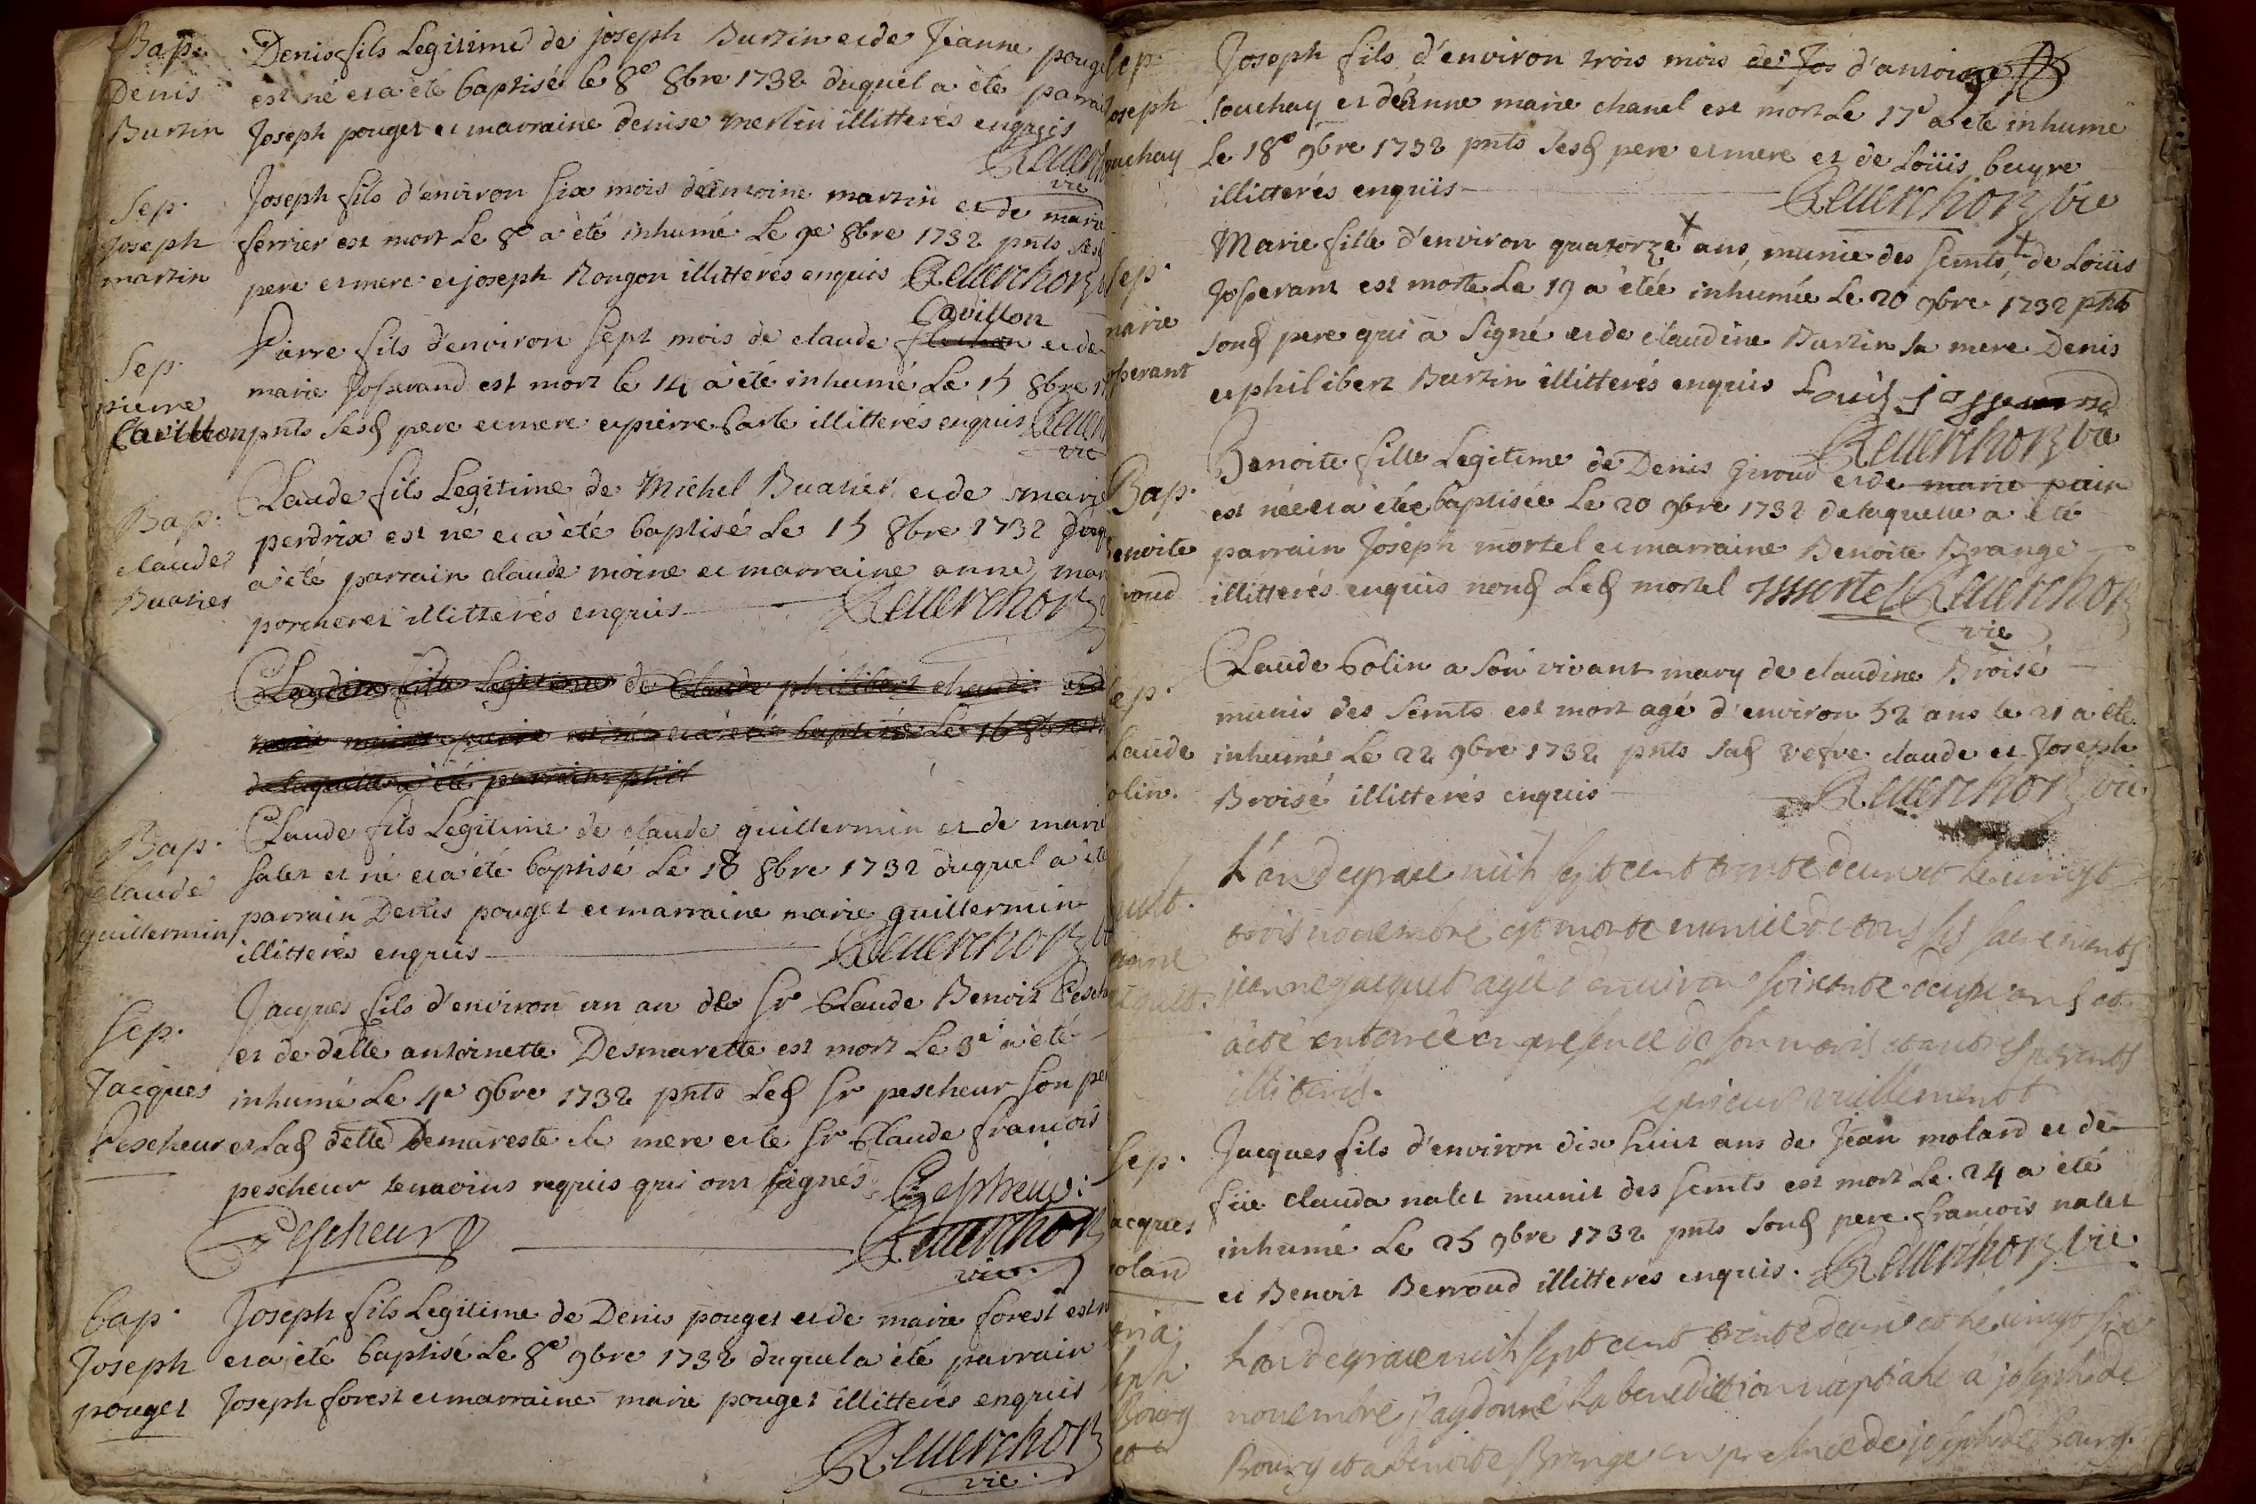 Bap.
Denis
Burtin
Denis fils Legitime de joseph Burtin et de Jeanne pouge
est né et a été baptisé le 8e 8bre 1732 duquel a été parrai
Joseph pouget et marraine denise merlin illitterés enquis
Reuerchon
vic
Sep.
Joseph
martin
Joseph fils d'environ six mois d'antoine martin et de marie
ferrier est mort Le 8e a été inhumé Le 9e 8bre 1732 pnts ses
pere et mere et joseph Rougon illitterés enquis Reuerchon
Sep.
pierre
Cavillon
Cavillon
Pierre fils d'environ sept mois de claude et de
marie Josserand est mort le 14 a été inhumé Le 15 8bre 17
pnts sesd pere et mere et pierre Carle illitterés enquis Reuer
vic
Bap.
claude
Buatier
Claude fils Legitime de Michel Buatier et de marie
perdrix est né et a été baptisé Le 15 8bre 1732 duq
a été parrain claude moine et marraine anne mar
porcheret illitterés enquis Reuerchon
Claudine fille Legitime de Claude philibert et d
est née et a été baptisée Le 16 8bre
de laquelle a été parrain phil
Bap.
claude
guillermin
Claude fils Legitime de claude guillermin et de marie
salet et né et a été baptisé Le 18 8bre 1732 duquel a été
parrain Denis pouget et marraine marie guillermin
illitterés enquis Reuerchon
Sep.
Jacques
Pescheur
Jacques fils d'environ un an de Sr Claude Benoit Pesch
et de delle antoinette Desmarette est mort Le 3e a été
inhumé Le 4e 9bre 1732 pnts Led Sr pescheur son pe
et Lad delle Demareste sa mere et le Sr Claude francois
pescheur temoins requis qui ont signés Pescheur
Pescheur Reuerchon
vic.
bap.
Joseph
pouget
Joseph fils Legitime de Denis pouget et de marie forest est n
et a été baptisé Le 8e 9bre 1732 duquel a été parrain
Joseph forest et marraine marie pouget illitterés enquis
Reuerchon
vic.
sep.
oseph
ouchay
Joseph fils d'environ trois mois de Jos d'antoine
souchay et d'anne marie chanel est mort Le 17e a été inhumé
Le 18e 9bre 1732 pnts sesd pere et mere et de Loüis buyre
illitterés enquis Reuerchon vic
sep.
marie
osserant
Marie fille d'environ quatorze ans, munie des scmts, de Loüis
Josserant est morte Le 19 a étée inhumée Le 20 9bre 1732 pnts
sond pere qui a signé et de claudine Burtin sa mere Denis
et philibert Burtin illitterés enquis Louis josserand
Reuerchon vic
Bap.
enoite
iroud
Benoite fille Legitime de Denis Giroud et de marie pain
est née et a étée baptisée Le 20 9bre 1732 de laquelle a été
parrain Joseph mortel et marraine Benoite Brange
illitterés enquis nond Led mortel mortel Reuerchon
vic
sep.
laude
olin.
Claude Colin a son vivant mary de claudine Broisé
munis des scmts est mort agé d'environ 52 ans le 21 a été
inhumé Le 22 9bre 1732 pnts sad vefve claude et Joseph
Broisé illitterés enquis Reuerchon vic
L'an de grace mil sept cent trente deux et le vingt
trois novembre est morte munie de tous ses sacrements
jeanne jacquet agée d'environ soixante deux ans et
a été enterrée en presence de son maris et autres parents
illiterés.
vuillemenot
Sep.
acques
oland
Jacques fils d'environ dix huit ans de Jean moland et de
füe clauda nalet munit des scmts est mort Le 24 a été
inhumé Le 25 9bre 1732 pnts sond pere francois nalet
et Benoit Berroud illitterés enquis. Reuerchon vic
ria.
seph
Bourg
et
L'an de grace mil sept cent trente deux et le vingt six
novembre j'ay donné la benediction nuptiale a joseph de
Bourg et a benoite Brange en presence de joseph de Bourg